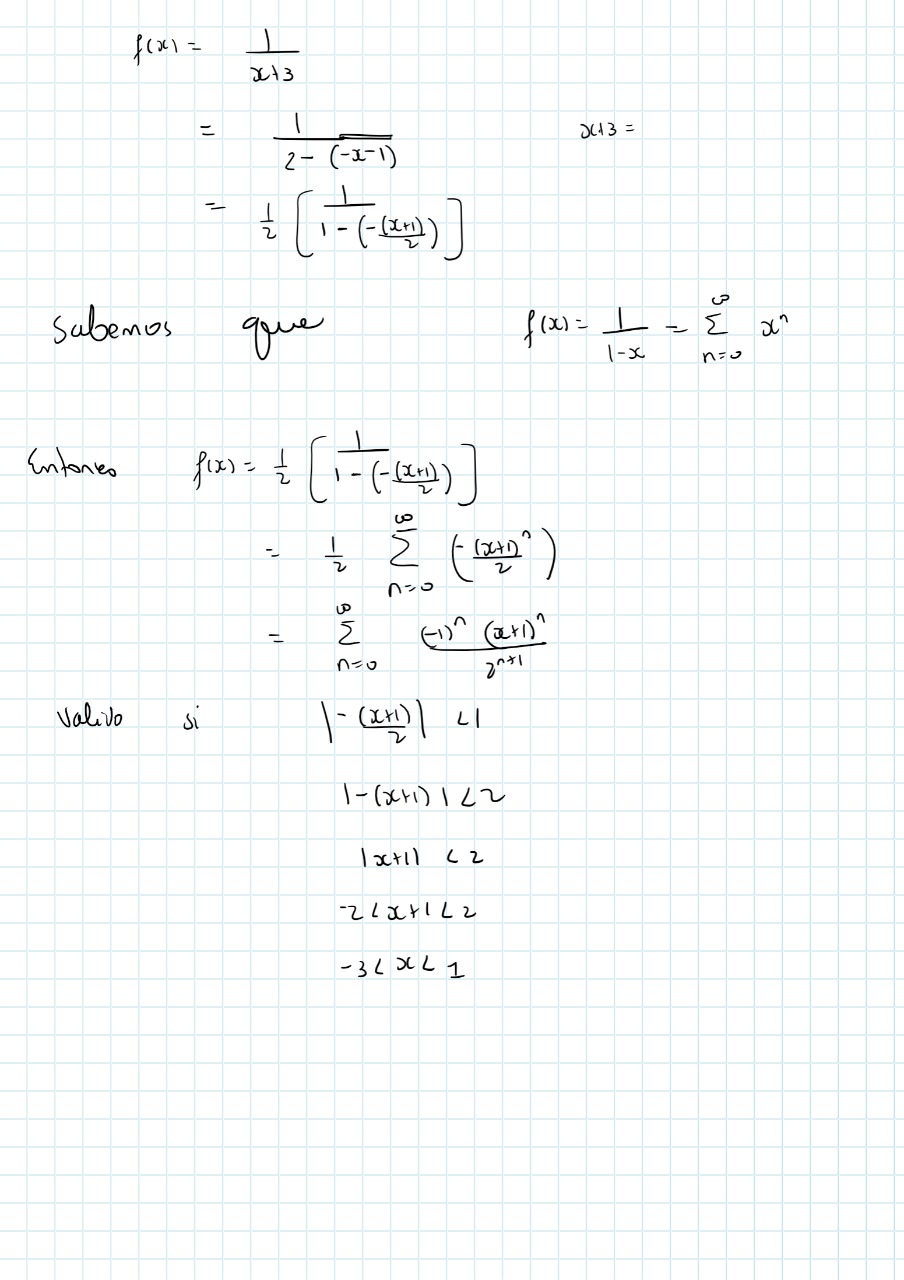 f(x) = 1/(x+3)
= 1/(2 - (-x-1))    x+3 =
= 1/2 [ 1/(1 - (-(x+1)/2)) ]
Sabemos que    f(x) = 1/(1-x) = ∑_{n=0}^{∞} x^n
Entonces f(x) = 1/2 [ 1/(1 - (-(x+1)/2)) ]
= 1/2 ∑_{n=0}^{∞} (-(x+1)^n/2)
= ∑_{n=0}^{∞} (-1)^n (x+1)^n / 2^{n+1}
Valido si |-(x+1)/2| < 1
|-(x+1)| < 2
|x+1| < 2
-2 < x+1 < 2
-3 < x < 1